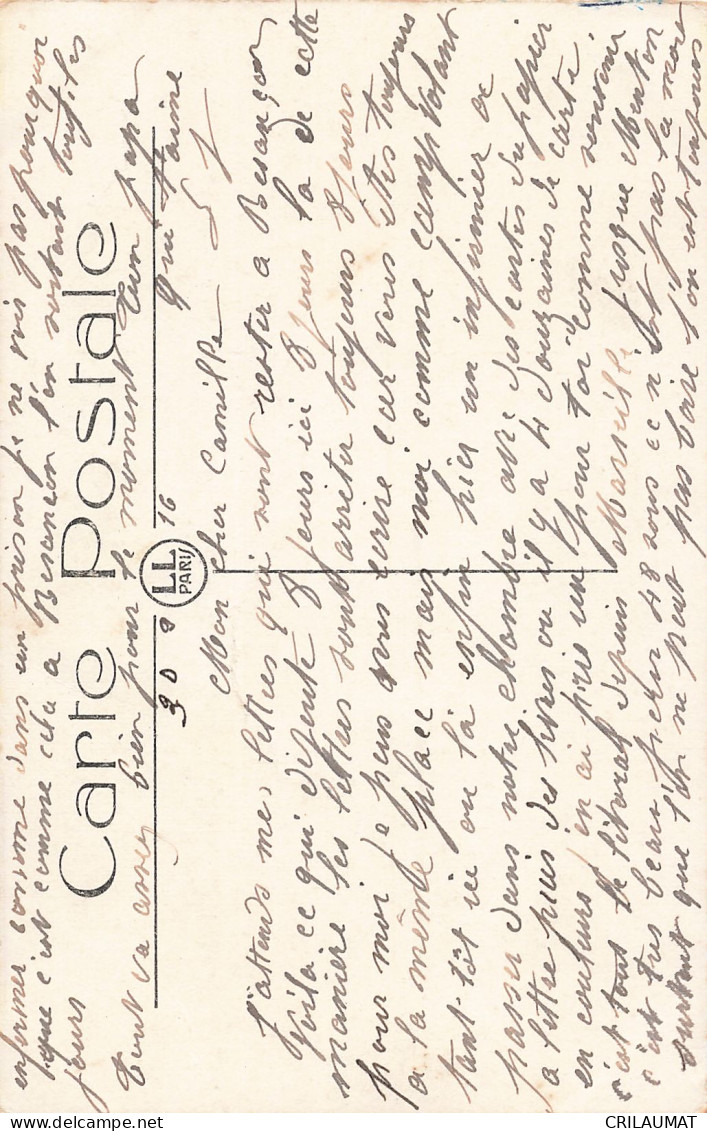 Carte Postale
LL
PARIS
30 8 16
Mon cher Camille
J'attends mes lettres qui vont rester a Besançon
Voila ce qui dejente 8 jours ici 8 jours la de cette
maniere les lettres sont arreter toujours 8 jours
pour moi je peus vous ecrire car vous êtes toujours
a la même place mais moi comme camp volant
tant-tôt ici ou là enfin hier un infirmier a
passer dans notre chambre avec des cartes du papier
a lettre puis des livres ou il y a 4 douzaines de carte
en couleurs j'en ai pris un pour toi comme souvenir
c'est tous le litoral depuis Marseille jusque Menton
c'est tres beau, 48 sous ce n'est pas la mort
surtout que l'on ne peut pas boire l'on est toujours
enfermer comme dans un prison je ne vois pas pourquoi
que c'est comme cela a Besancon l'on sortait tous les
jours
tout va assez bien pour le moment ton papa
qui t'aime